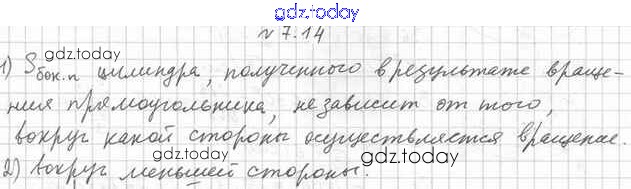 gdz.today
№ 7.14
gdz.today
1) Sбок.п цилиндра, полученного в результате враще-
ния прямоугольника, не зависит от того,
gdz.today
вокруг какой стороны осуществляется вращение.
2) вокруг меньшей стороны.
gdz.today
gdz.today